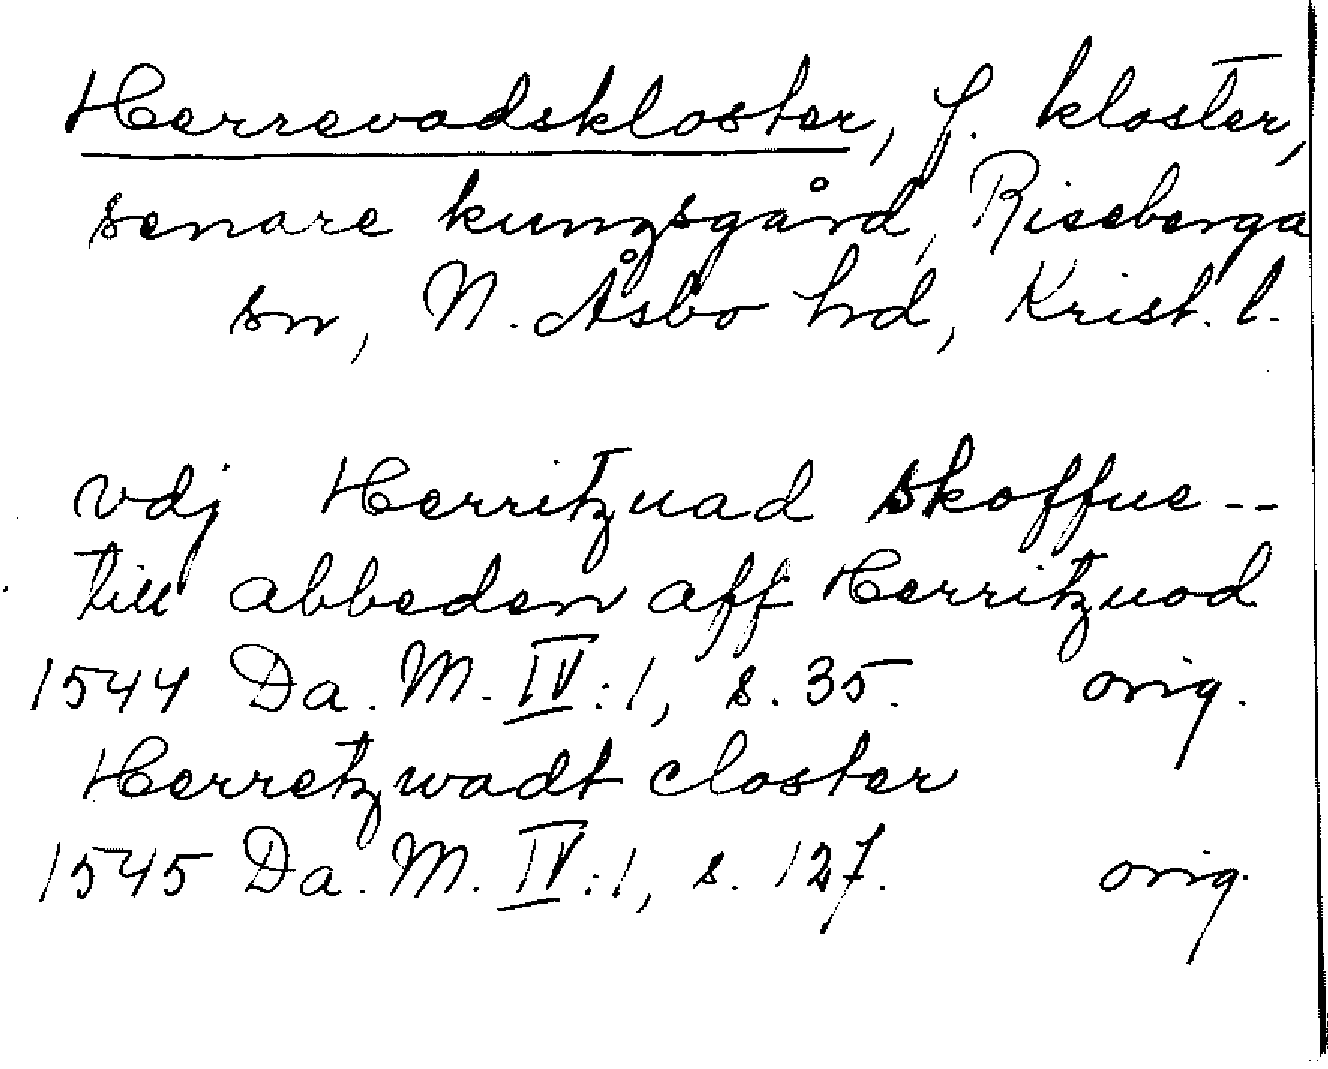 Herrevadskloster, f. kloster,
senare kungsgård, Riseberga
sn, N. Åsbo hd, Krist. l.
vdj Herritzuad skoffue --
till abbeden aff Herritzuad
1544 Da. M. IV:1, s. 35. orig.
Herretzwadt closter
1545 Da. M. IV:1, s. 127. orig.